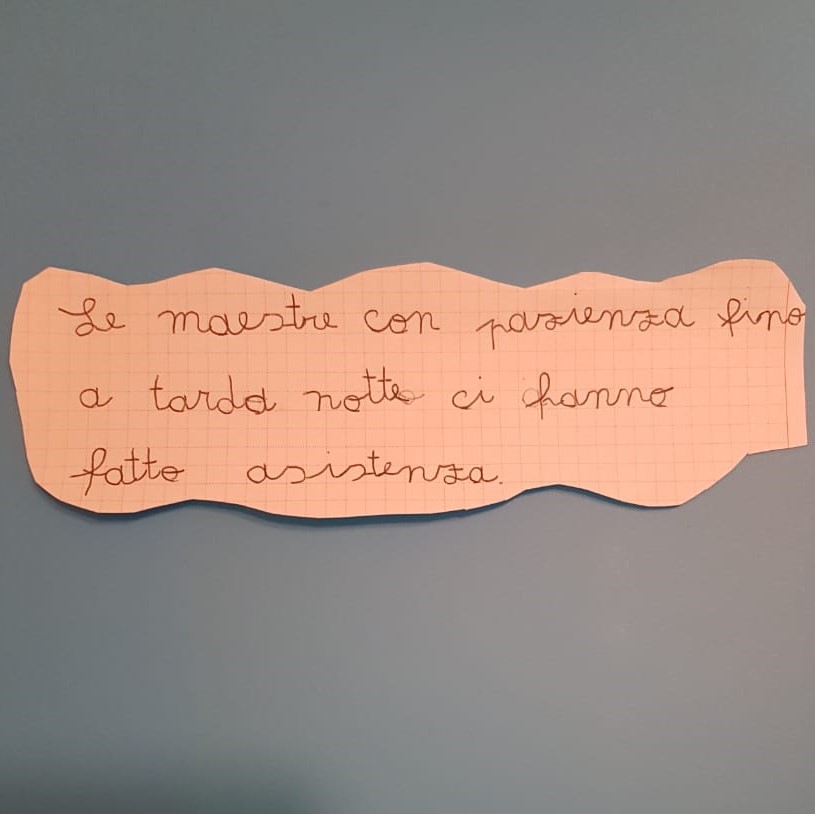 Le maestre con pazienza fino
a tarda notte ci hanno
fatto asistenza.